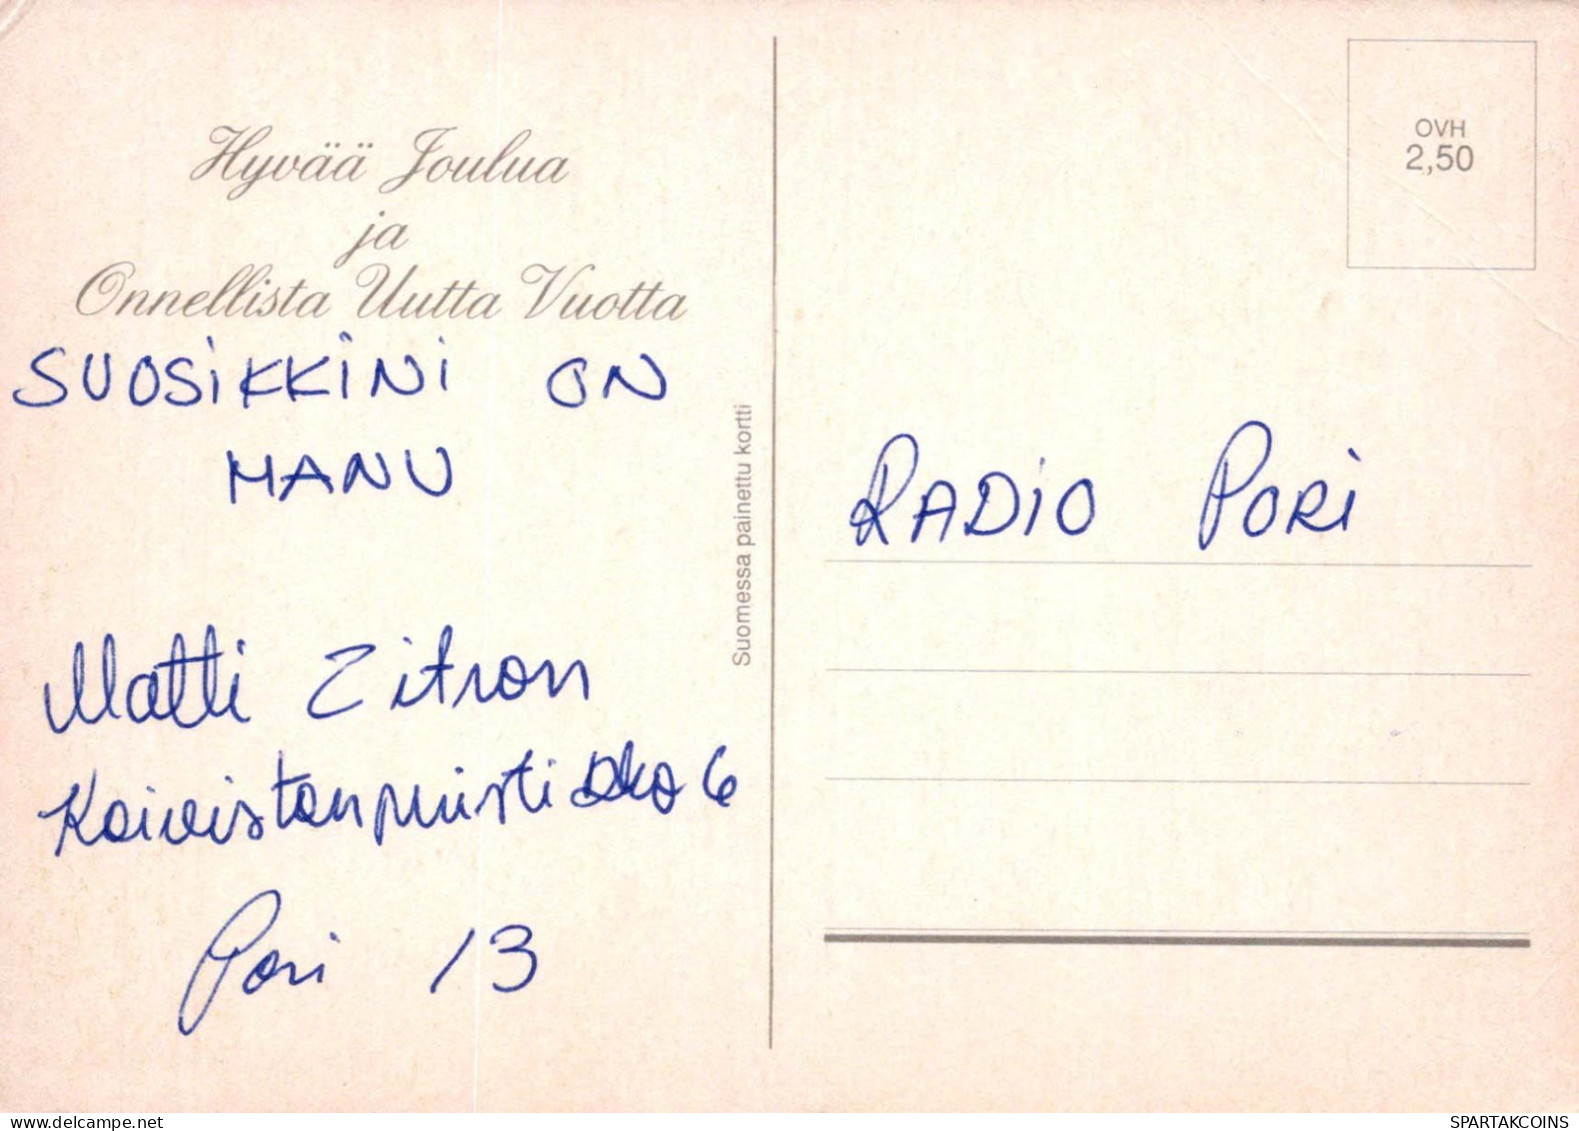 Hyvää Joulua
ja
Onnellista Uutta Vuotta
SUOSIKKINI ON
MANU
Matti Zitron
Koivistonpuisti 6
Pori 13
Suomessa painettu kortti
OVH
2,50
RADIO PORI
delcampe.net
SPARTAKCOINS